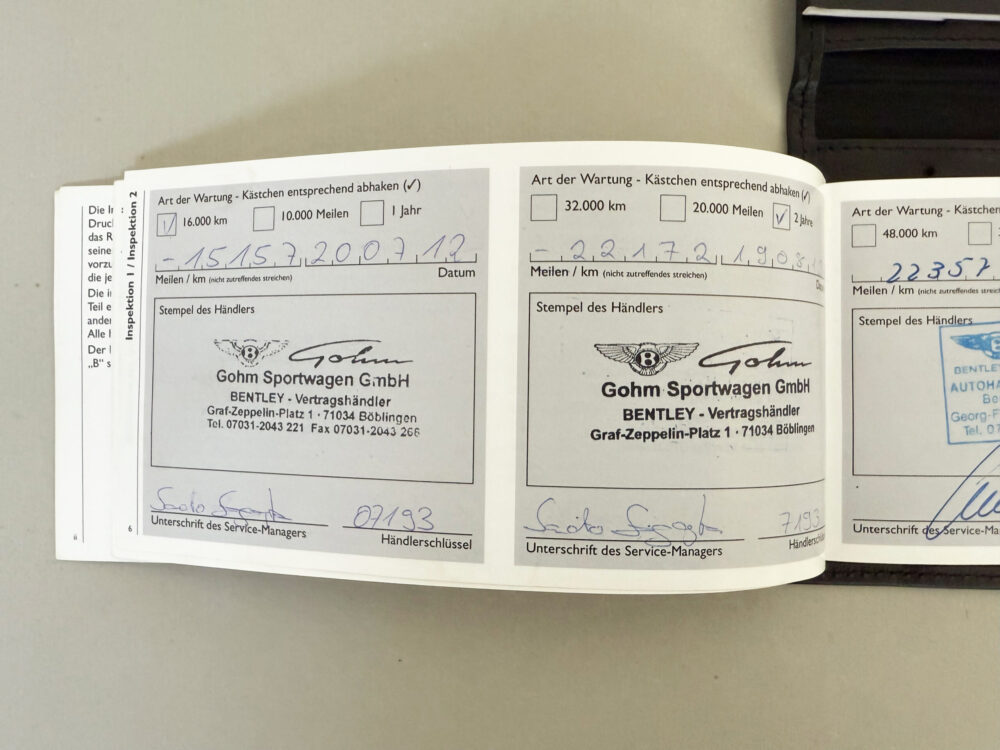 Inspektion 1 / Inspektion 2
Die
Druc
das R
seine
vorzu
die je
Die i
Teil e
ander
Alle
Der
„B“ s
6
Art der Wartung - Kästchen entsprechend abhaken (✓)
16.000 km
10.000 Meilen
1 Jahr
- 15157 2007 12
Meilen / km (nicht zutreffendes streichen)
Datum
Stempel des Händlers
B
Gohm
Gohm Sportwagen GmbH
BENTLEY - Vertragshändler
Graf-Zeppelin-Platz 1 · 71034 Böblingen
Tel. 07031-2043 221 Fax 07031-2043 266
07193
Unterschrift des Service-Managers
Händlerschlüssel
Art der Wartung - Kästchen entsprechend abhaken (✓)
32.000 km
20.000 Meilen
✓ 2 Jahre
- 22172 1908
Meilen / km (nicht zutreffendes streichen)
Stempel des Händlers
B
Gohm
Gohm Sportwagen GmbH
BENTLEY - Vertragshändler
Graf-Zeppelin-Platz 1 · 71034 Böblingen
7193
Unterschrift des Service-Managers
Art der Wartung - Kästchen
48.000 km
22357
Meilen / km (nicht zutreffendes streich
Stempel des Händlers
B
BENTLEY
AUTOHA
Be
Georg-F
Tel. 07
Unterschrift des Service-Ma